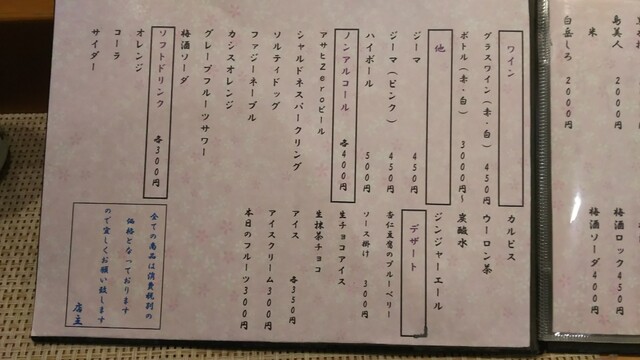 島美人 2000円
米
白岳しろ 2000円
梅酒ロック 450円
梅酒ソーダ 400円
ワイン
グラスワイン（赤・白） 450円
ボトル（赤・白） 3000円～
他
ジーマ 450円
ジーマ（ピンク） 450円
ハイボール 500円
ノンアルコール 各400円
アサヒZeroビール
シャルドネスパークリング
ソルティドッグ
ファジーネーブル
カシスオレンジ
グレープフルーツサワー
梅酒ソーダ
ソフトドリンク 各300円
オレンジ
コーラ
サイダー
カルピス
ウーロン茶
炭酸水
ジンジャーエール
デザート
杏仁豆腐のブルーベリー
ソース掛け 300円
生チョコアイス
生抹茶チョコ
アイス 各350円
アイスクリーム300円
本日のフルーツ300円
全ての商品は消費税別の
価格となっております
ので宜しくお願い致します
店主